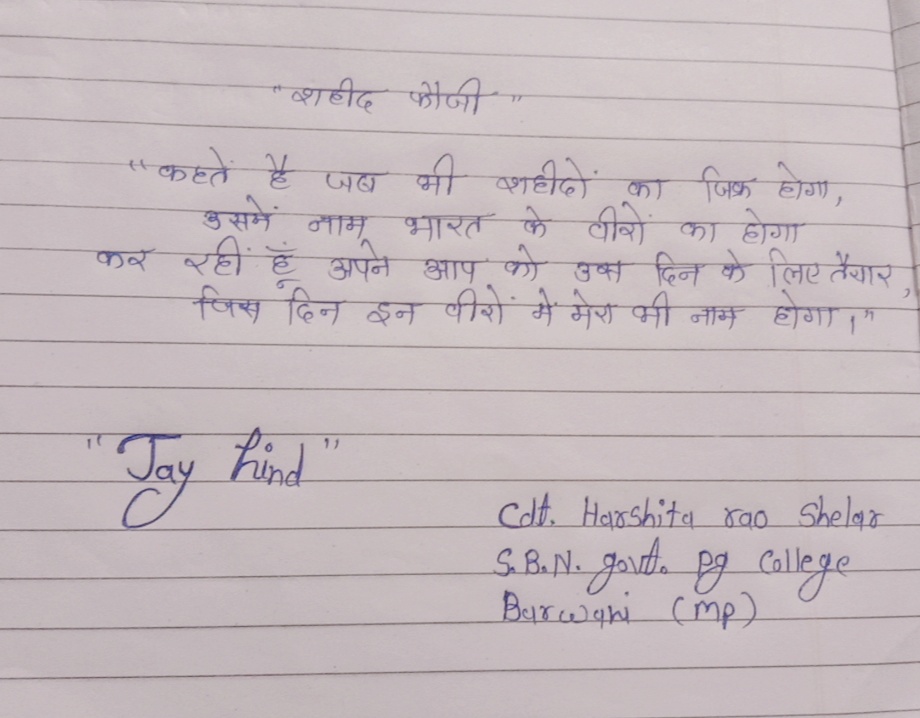 "शहीद फौजी"
"कहतें है जब भी शहीदों का जिक्र होगा,
उसमें नाम भारत के वीरों का होगा
कर रहीं हूँ अपने आप को उस दिन के लिए तैयार,
जिस दिन इन वीरों में मेरा भी नाम होगा।"
"Jay hind"
Cdt. Harshita rao Shelar
S.B.N. govt. pg College
Barwani (mp)